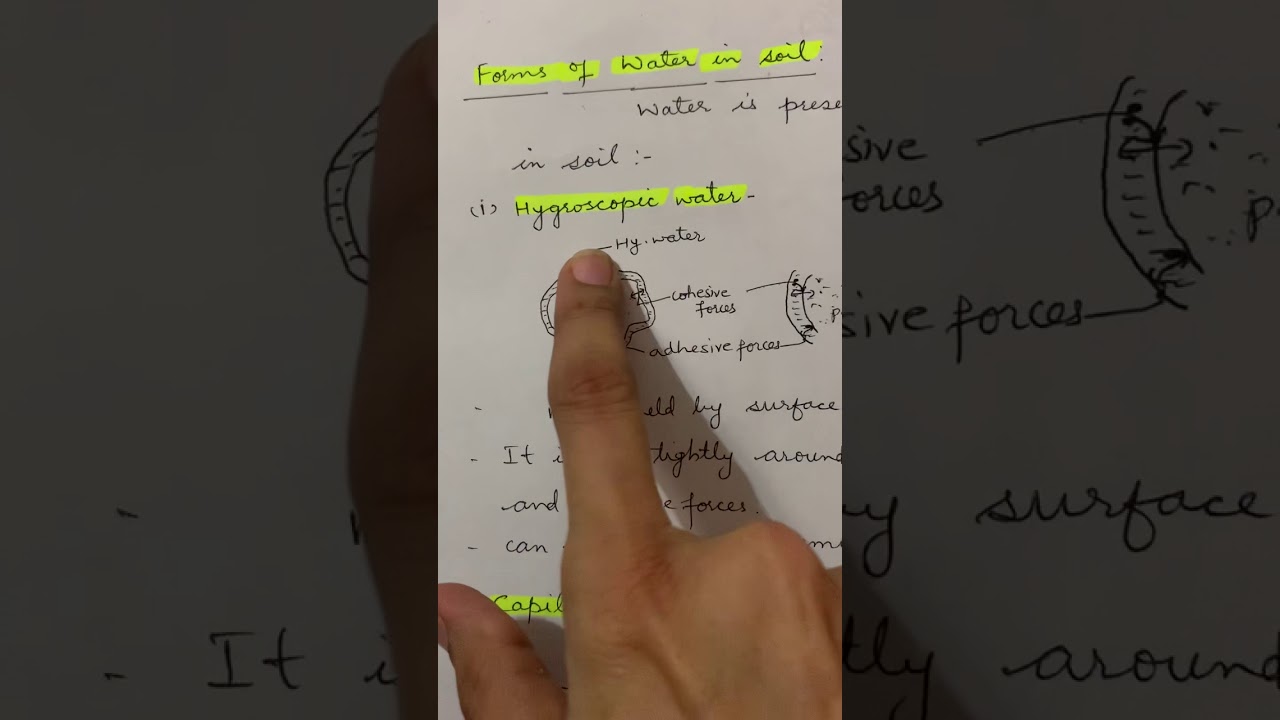 Forms of Water in soil:
Water is prese
in soil :-
(i) Hygroscopic water -
Hy. water
cohesive
forces
adhesive forces
eld by surface
- It i tightly around
and e forces.
- can
Capil